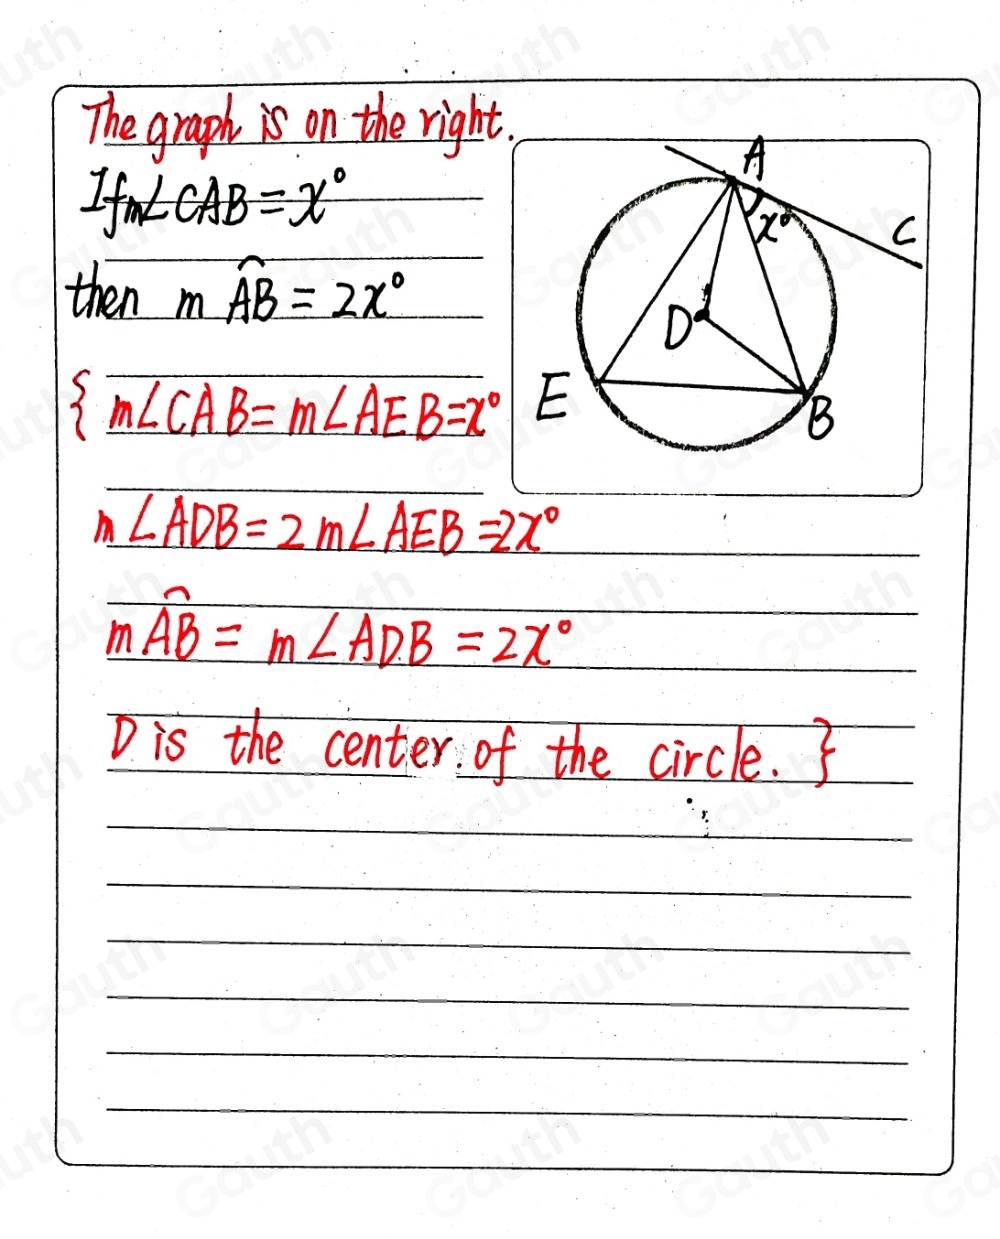 The graph is on the right.
If m∠CAB = x°
then m A͡B = 2x°
{ m∠CAB = m∠AEB = x°
m∠ADB = 2m∠AEB = 2x°
m A͡B = m∠ADB = 2x°
D is the center of the circle. }
A
x°
C
D
E
B
Gauth